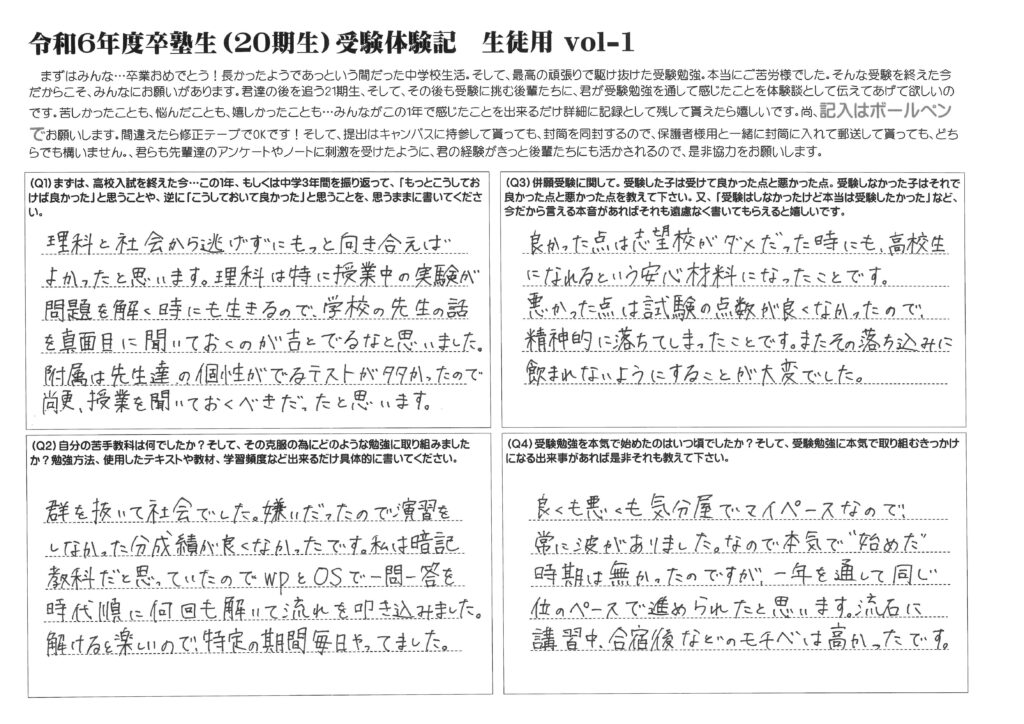 令和6年度卒塾生(20期生)受験体験記　生徒用 vol-1
まずはみんな…卒業おめでとう！長かったようであっという間だった中学校生活。そして、最高の頑張りで駆け抜けた受験勉強。本当にご苦労様でした。そんな受験を終えた今
だからこそ、みんなにお願いがあります。君達の後を追う21期生、そして、その後も受験に挑む後輩たちに、君が受験勉強を通して感じたことを体験談として伝えてあげて欲しいの
です。苦しかったことも、悩んだことも、嬉しかったことも…みんながこの1年で感じたことを出来るだけ詳細に記録として残して貰えたら嬉しいです。尚、記入はボールペン
でお願いします。間違えたら修正テープでOKです！そして、提出はキャンパスに持参して貰っても、封筒を同封するので、保護者様用と一緒に封筒に入れて郵送して貰っても、どち
らでも構いません。、君らも先輩達のアンケートやノートに刺激を受けたように、君の経験がきっと後輩たちにも活かされるので、是非協力をお願いします。
(Q1)まずは、高校入試を終えた今…この1年、もしくは中学3年間を振り返って、「もっとこうしてお
けば良かった」と思うことや、逆に「こうしておいて良かった」と思うことを、思うままに書いてくださ
い。
理科と社会から逃げずにもっと向き合えば
よかったと思います。理科は特に授業中の実験が
問題を解く時にも生きるので、学校の先生の話
を真面目に聞いておくのが吉とでるなと思いました。
附属は先生達の個性がでるテストが多かったので
尚更、授業を聞いておくべきだったと思います。
(Q2)自分の苦手教科は何でしたか？そして、その克服の為にどのような勉強に取り組みました
か？勉強方法、使用したテキストや教材、学習頻度など出来るだけ具体的に書いてください。
群を抜いて社会でした。嫌いだったので演習を
しなかった分成績が良くなかったです。私は暗記
教科だと思っていたのでwpとOSで一問一答を
時代順に何回も解いて流れを叩き込みました。
解けると楽しいので、特定の期間毎日やってました。
(Q3)併願受験に関して。受験した子は受けて良かった点と悪かった点。受験しなかった子はそれで
良かった点と悪かった点を教えて下さい。又、「受験はしなかったけど本当は受験したかった」など、
今だから言える本音があればそれも遠慮なく書いてもらえると嬉しいです。
良かった点は志望校がダメだった時にも、高校生
になれるという安心材料になったことです。
悪かった点は試験の点数が良くなかったので、
精神的に落ちてしまったことです。またその落ち込みに
飲まれないようにすることが大変でした。
(Q4)受験勉強を本気で始めたのはいつ頃でしたか？そして、受験勉強に本気で取り組むきっかけ
になる出来事があれば是非それも教えて下さい。
良くも悪くも気分屋でマイペースなので、
常に波がありました。なので本気で"始めた"
時期は無かったのですが、一年を通して同じ
位のペースで進められたと思います。流石に
講習中、合宿後などのモチベは高かったです。